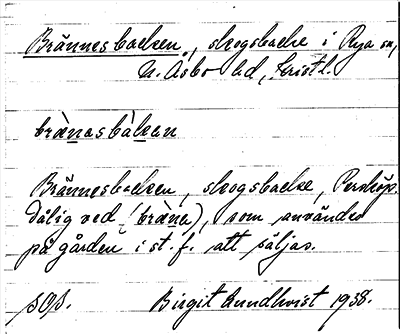 Brännesbacken, skogsbacke i Rya sn,
N. Åsbo hd, Kristl.
brä̀nasbàkan
Brännesbacken, skogsbacke, Perstorp.
Dålig ved (bräna), som användes
på gården i st. f. att säljas.
Birgit Lundkvist 1938.